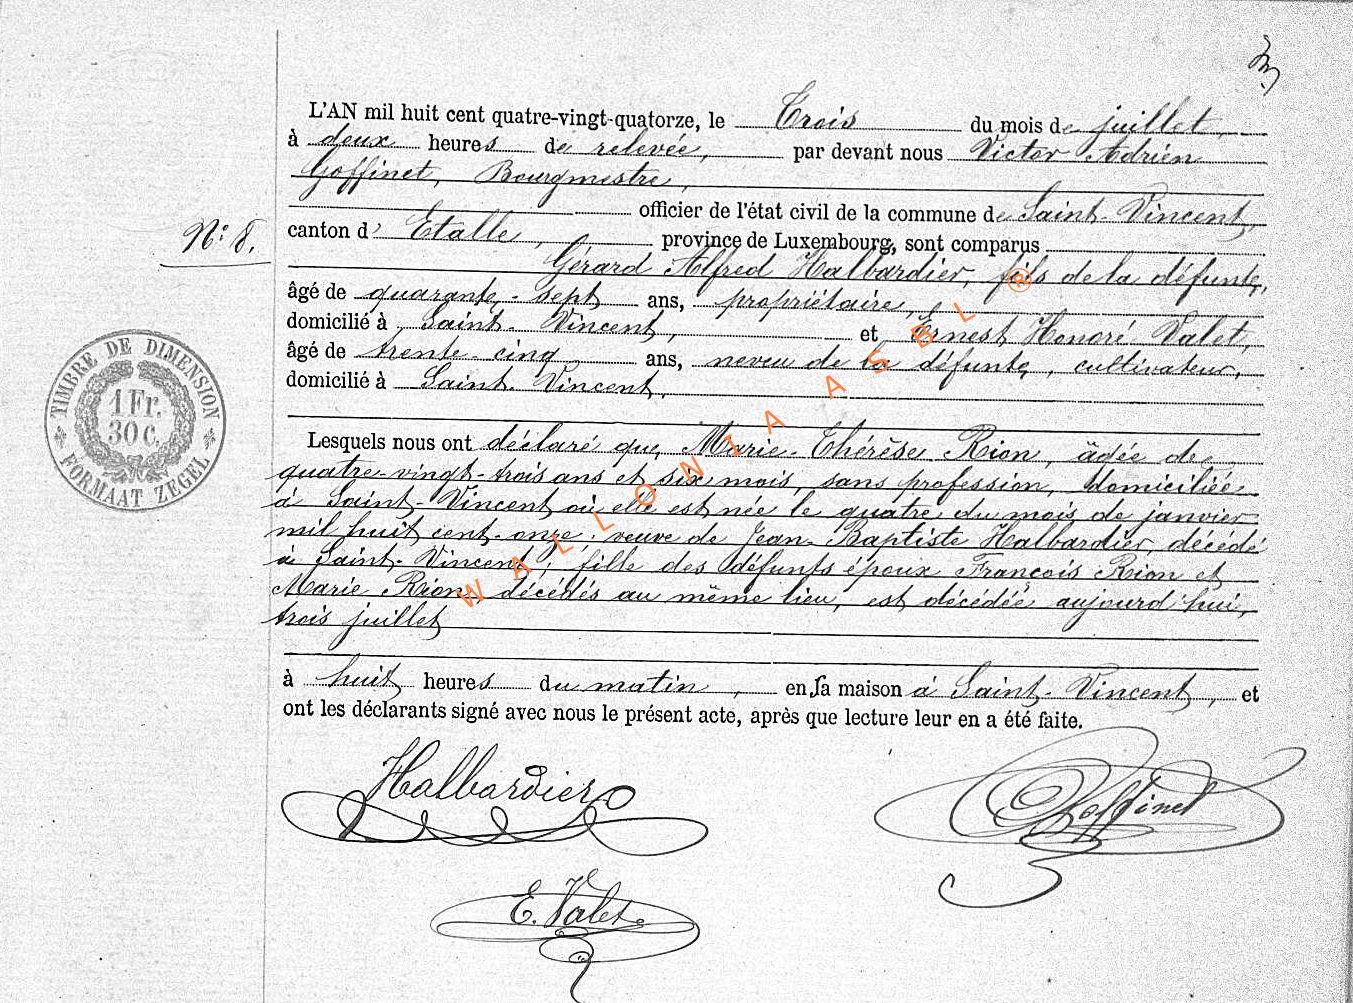 L'AN mil huit cent quatre-vingt-quatorze, le Trois du mois de juillet,
à deux heures de relevée, par devant nous Victor Adrien
Goffinet, Bourgmestre,
officier de l'état civil de la commune de Saint-Vincent,
N° 8.
canton d'Etalle, province de Luxembourg, sont comparus
Gérard Alfred Halbardier, fils de la défunte,
âgé de quarante-sept ans, propriétaire,
domicilié à Saint-Vincent, et Ernest Honoré Valet,
âgé de trente-cinq ans, neveu de la défunte, cultivateur,
domicilié à Saint-Vincent,
Lesquels nous ont déclaré que Marie-Thérèse Rion, âdée de
quatre-vingt-trois ans et six mois, sans profession, domiciliée
à Saint-Vincent où elle est née le quatre du mois de janvier
mil huit cent-onze; veuve de Jean-Baptiste Halbardier, décédé
à Saint-Vincent; fille des défunts époux François Rion et
Marie Rion, décédés au même lieu, est décédée aujourd'hui,
trois juillet
à huit heures du matin, en sa maison à Saint-Vincent, et
ont les déclarants signé avec nous le présent acte, après que lecture leur en a été faite.
Halbardier
Goffinet
E. Valet
TIMBRE DE DIMENSION
1 Fr.
30 C.
FORMAAT ZEGEL
WALLONIA ASBL ®